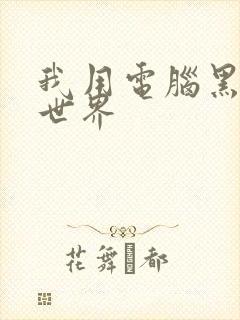 我用電腦黑
世界
花舞�都